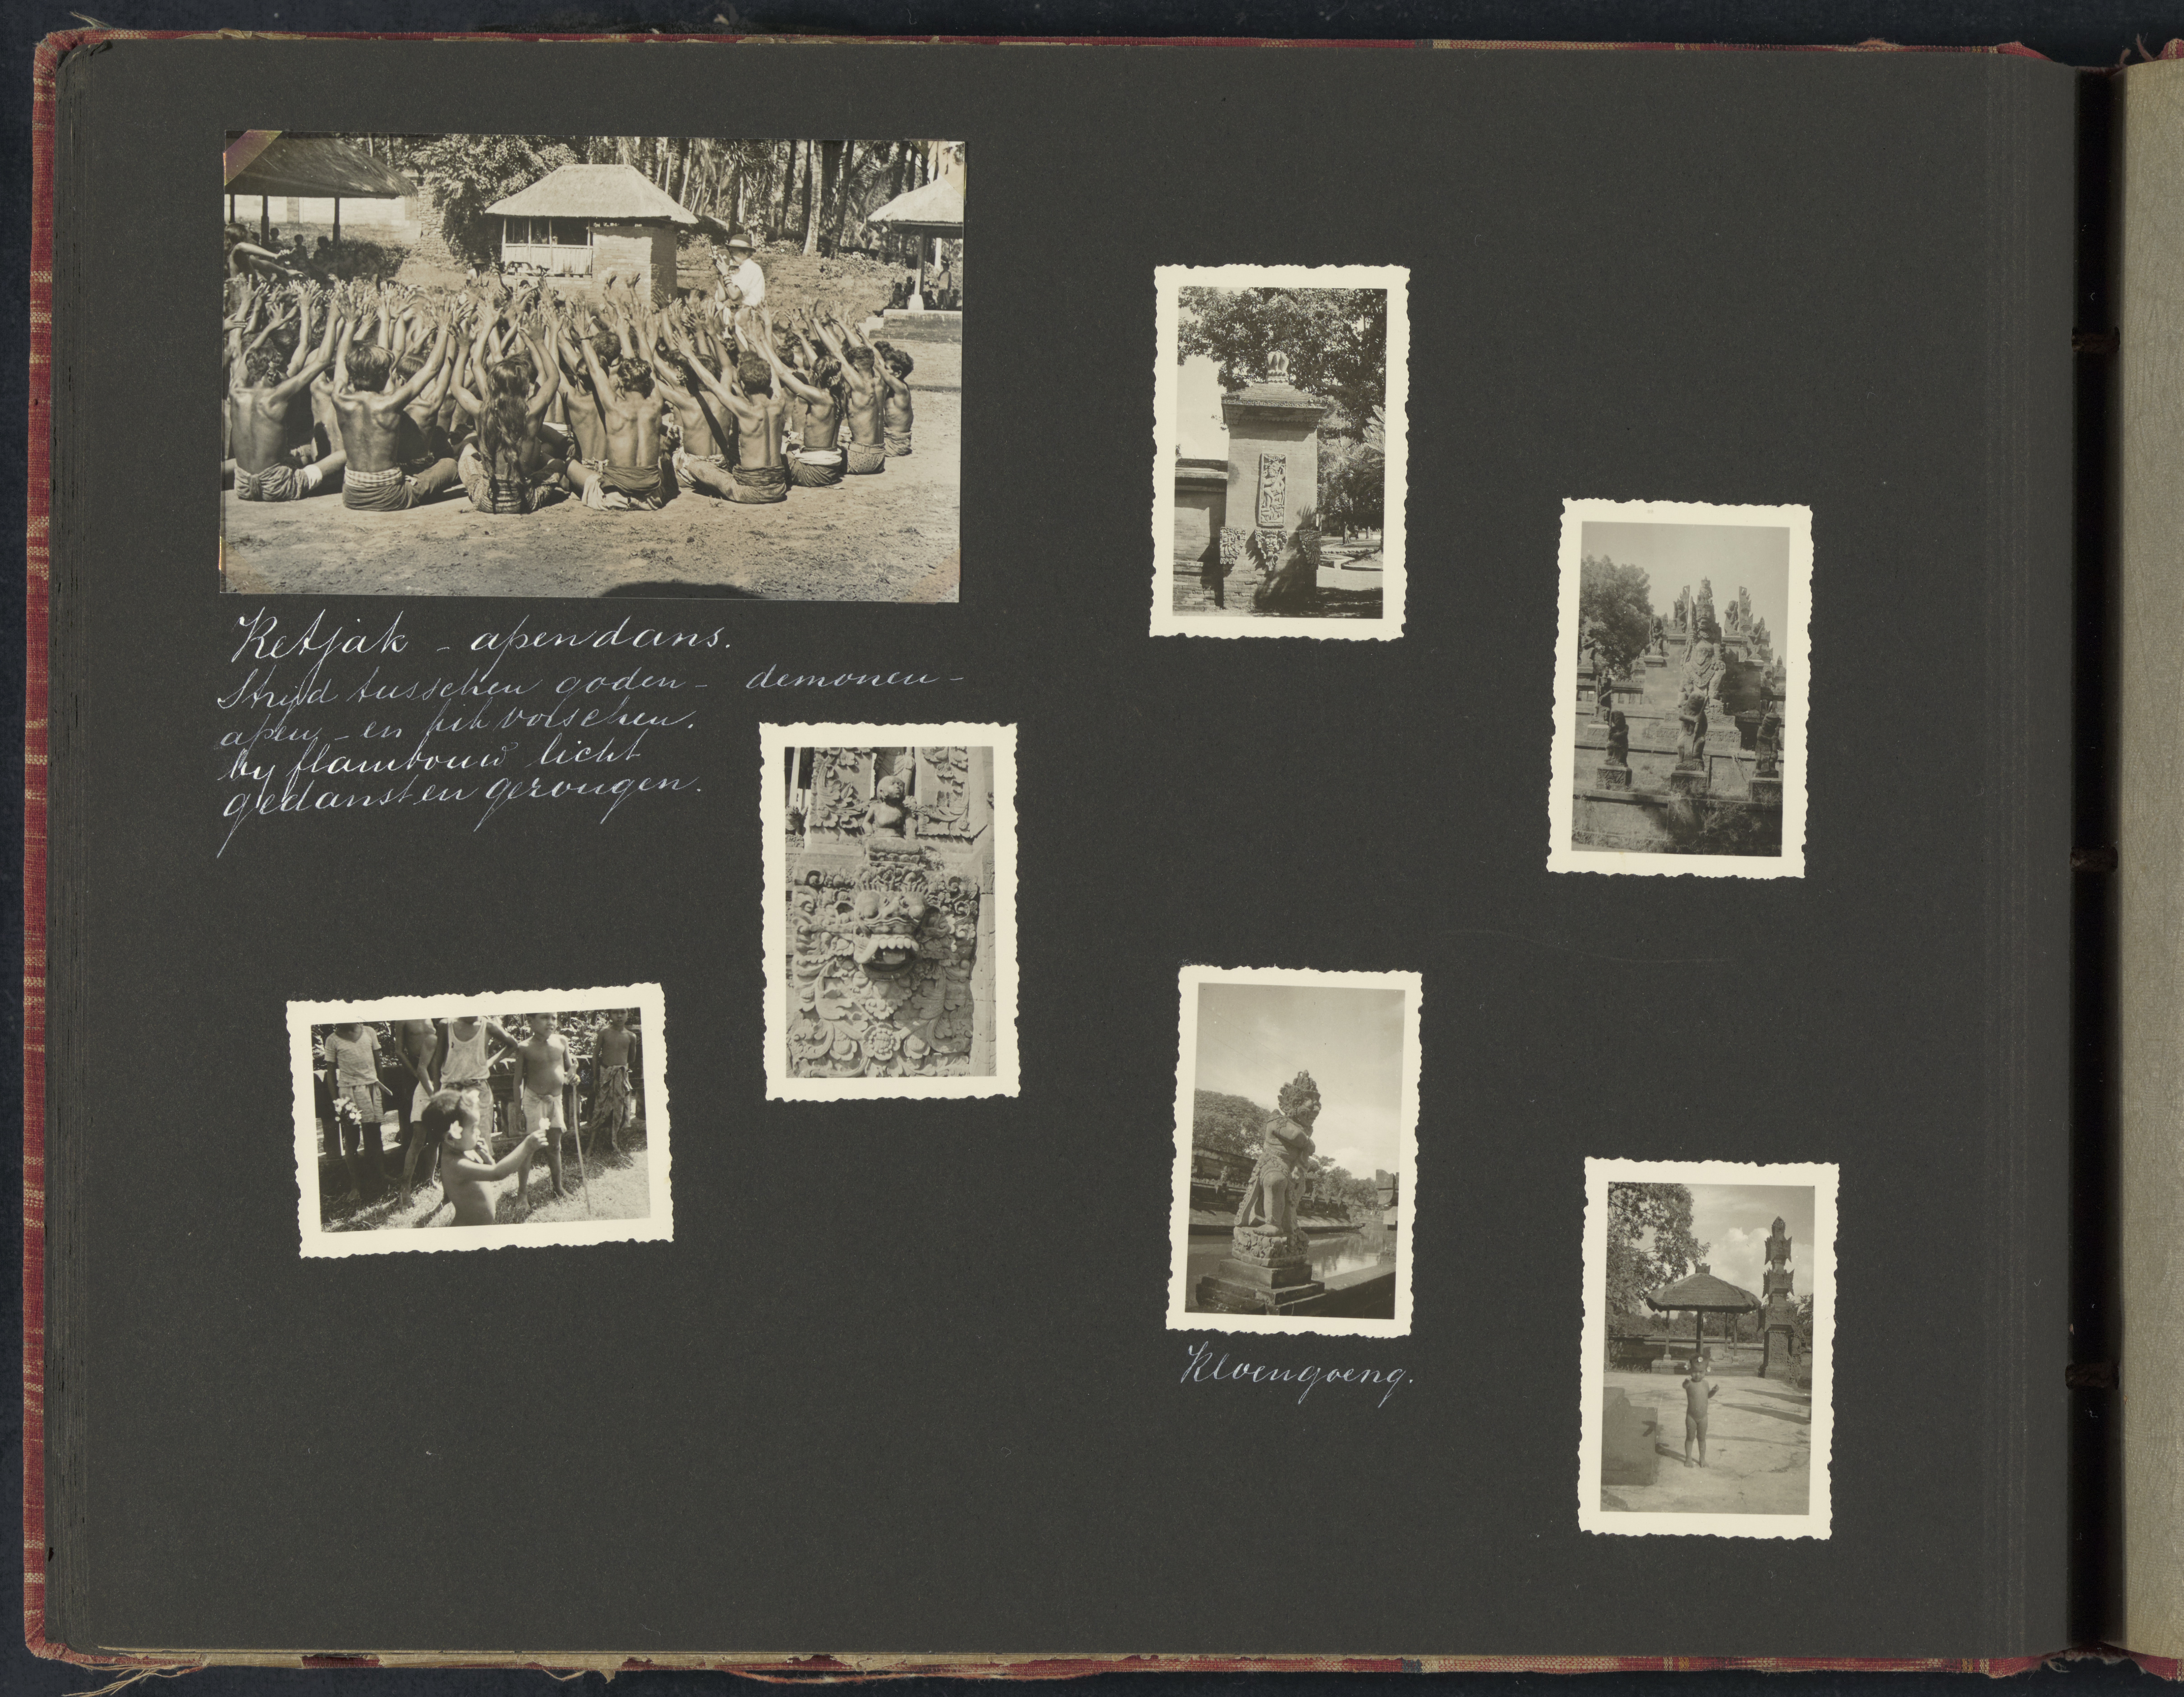 Ketjak - apendans.
Strijd tusschen goden - demonen -
apen - en kikvorschen.
by flambouw licht
gedanst en gezongen.
Kloengoeng.